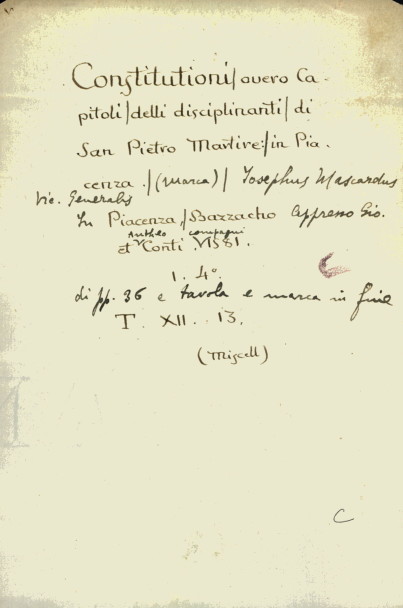 Constitutioni/overo Ca-
pitoli/delli disciplinanti/di
San Pietro Martire:/in Pia.
cenza./(marca)/ Josephus Mascardus
Vic. Generalis
In Piacenza,/Bazzacho Appresso Gio.
Antheo compagni
et Conti 1581.
1. 4°.
di pp. 36 e tavola e marca in fine
T. XII. 13.
(Miscell)
C